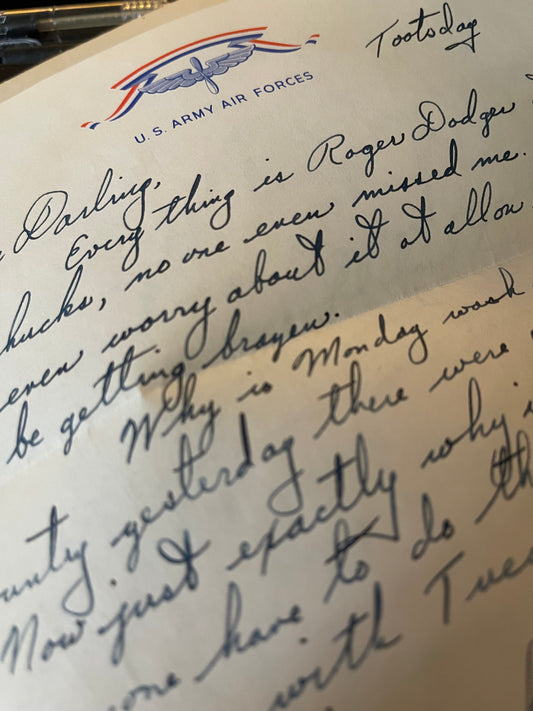 U.S. ARMY AIR FORCES
Tootsday
Darling,
Every thing is Roger Dodger
hucks, no one even missed me.
even worry about it at allow
be getting brazen.
Why is Monday wash
untry yesterday there were
Now just exactly why i
one have to do th
with Tues